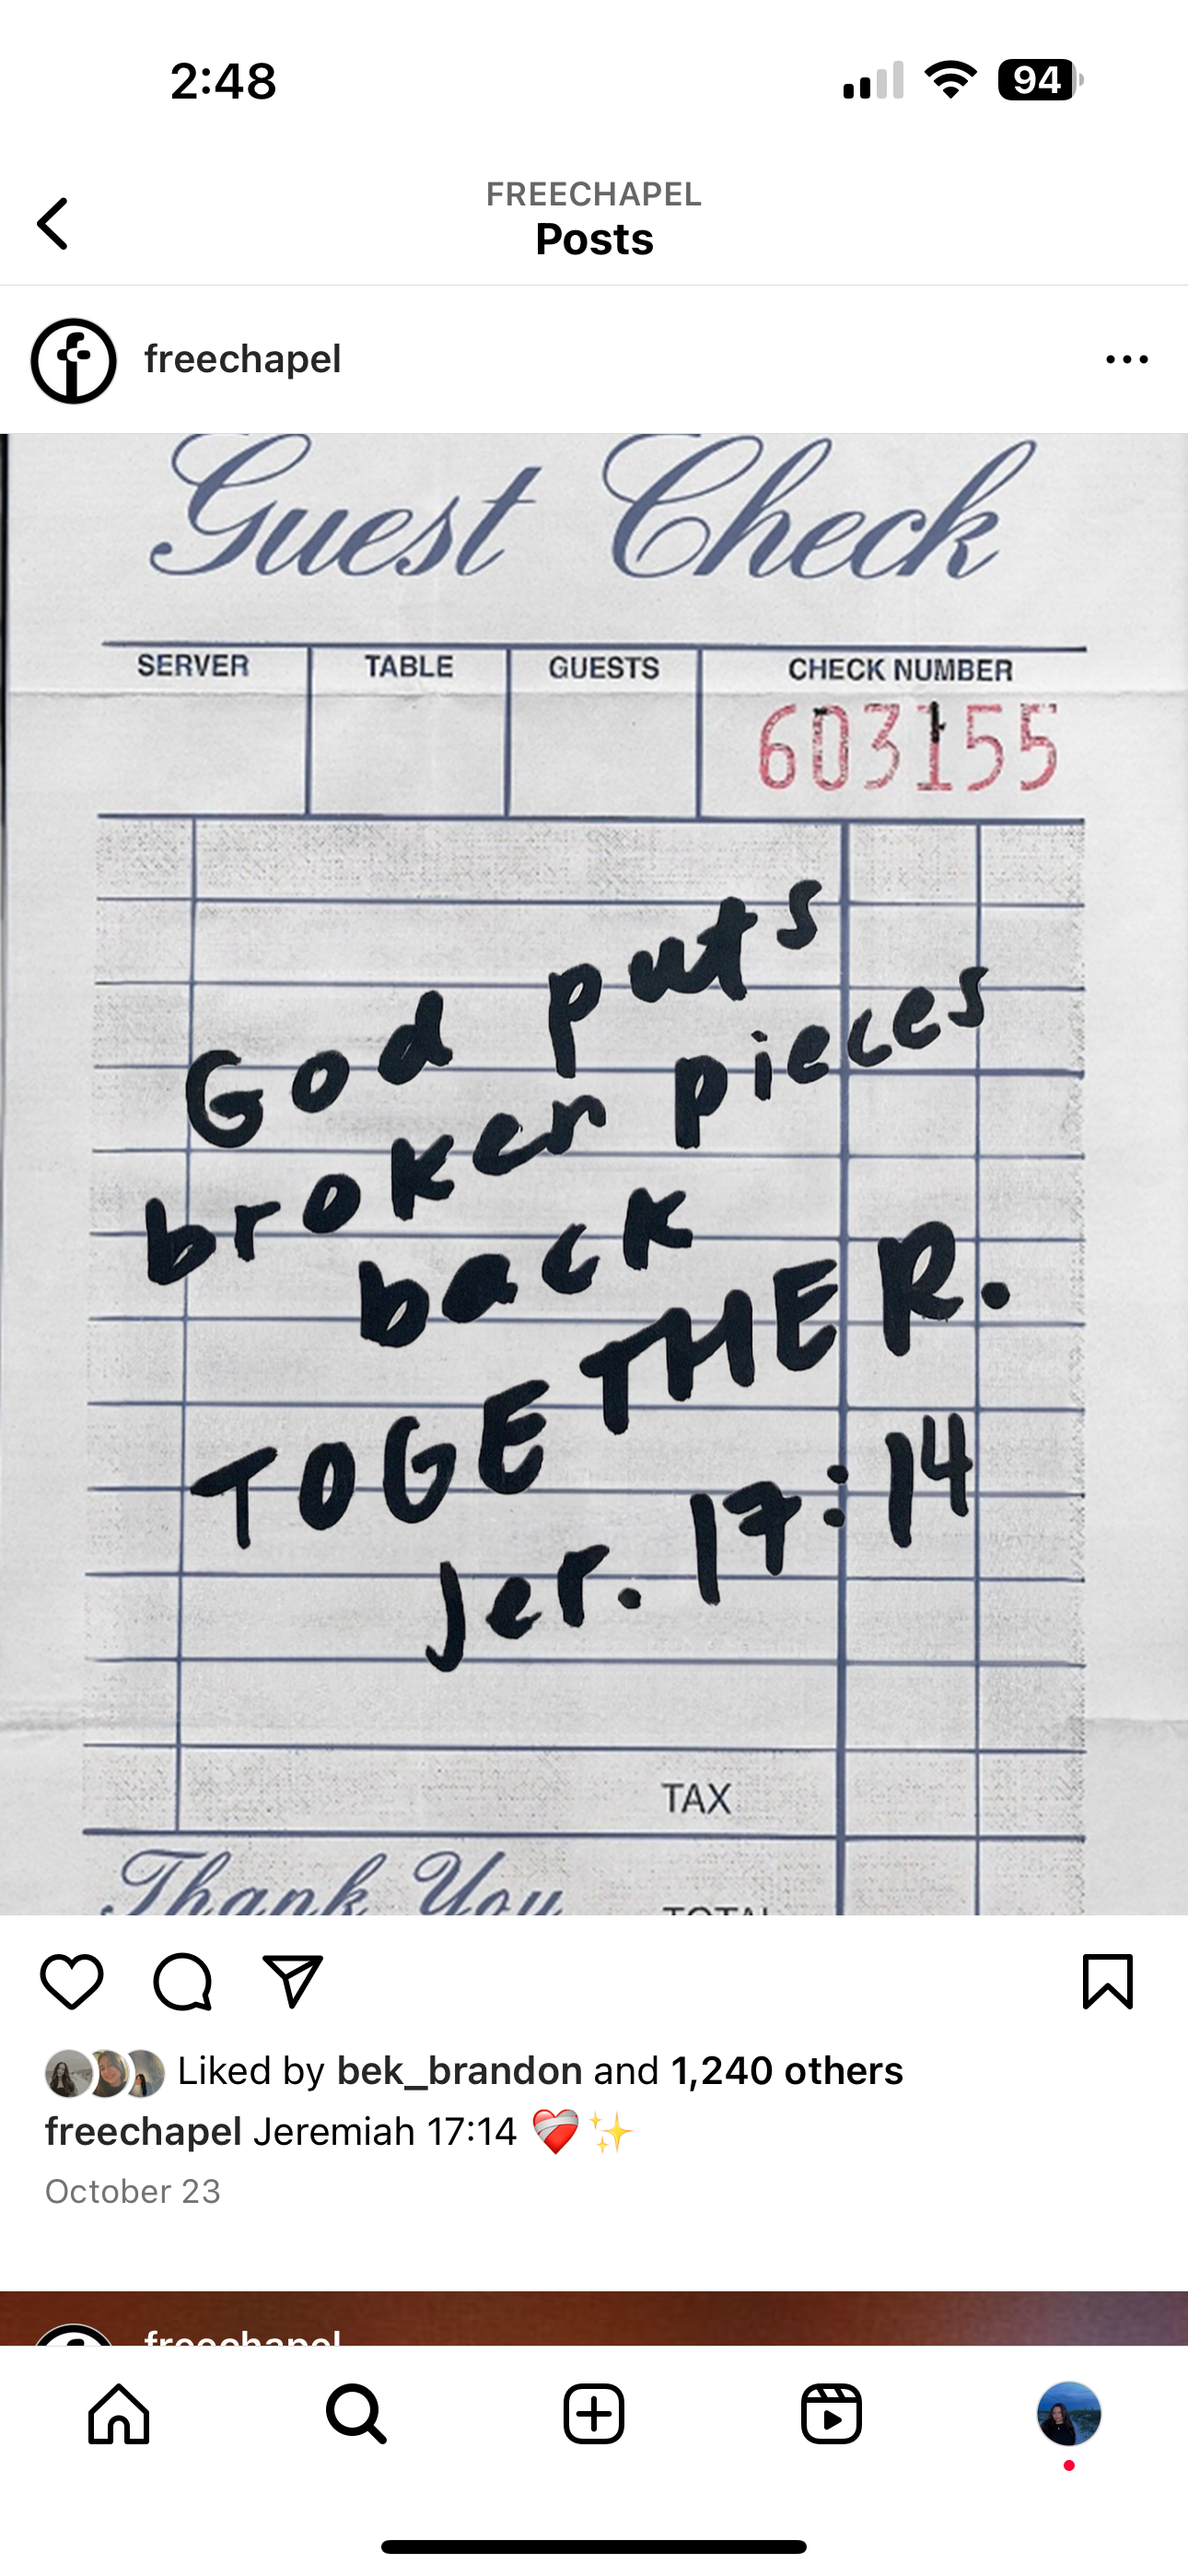 2:48
94
FREECHAPEL
Posts
freechapel
Guest Check
SERVER TABLE GUESTS CHECK NUMBER
603155
God puts
broken pieces
back
TOGETHER.
Jer. 17:14
TAX
Thank You TOTAL
Liked by bek_brandon and 1,240 others
freechapel Jeremiah 17:14 ❤️‍🩹✨
October 23
freechapel